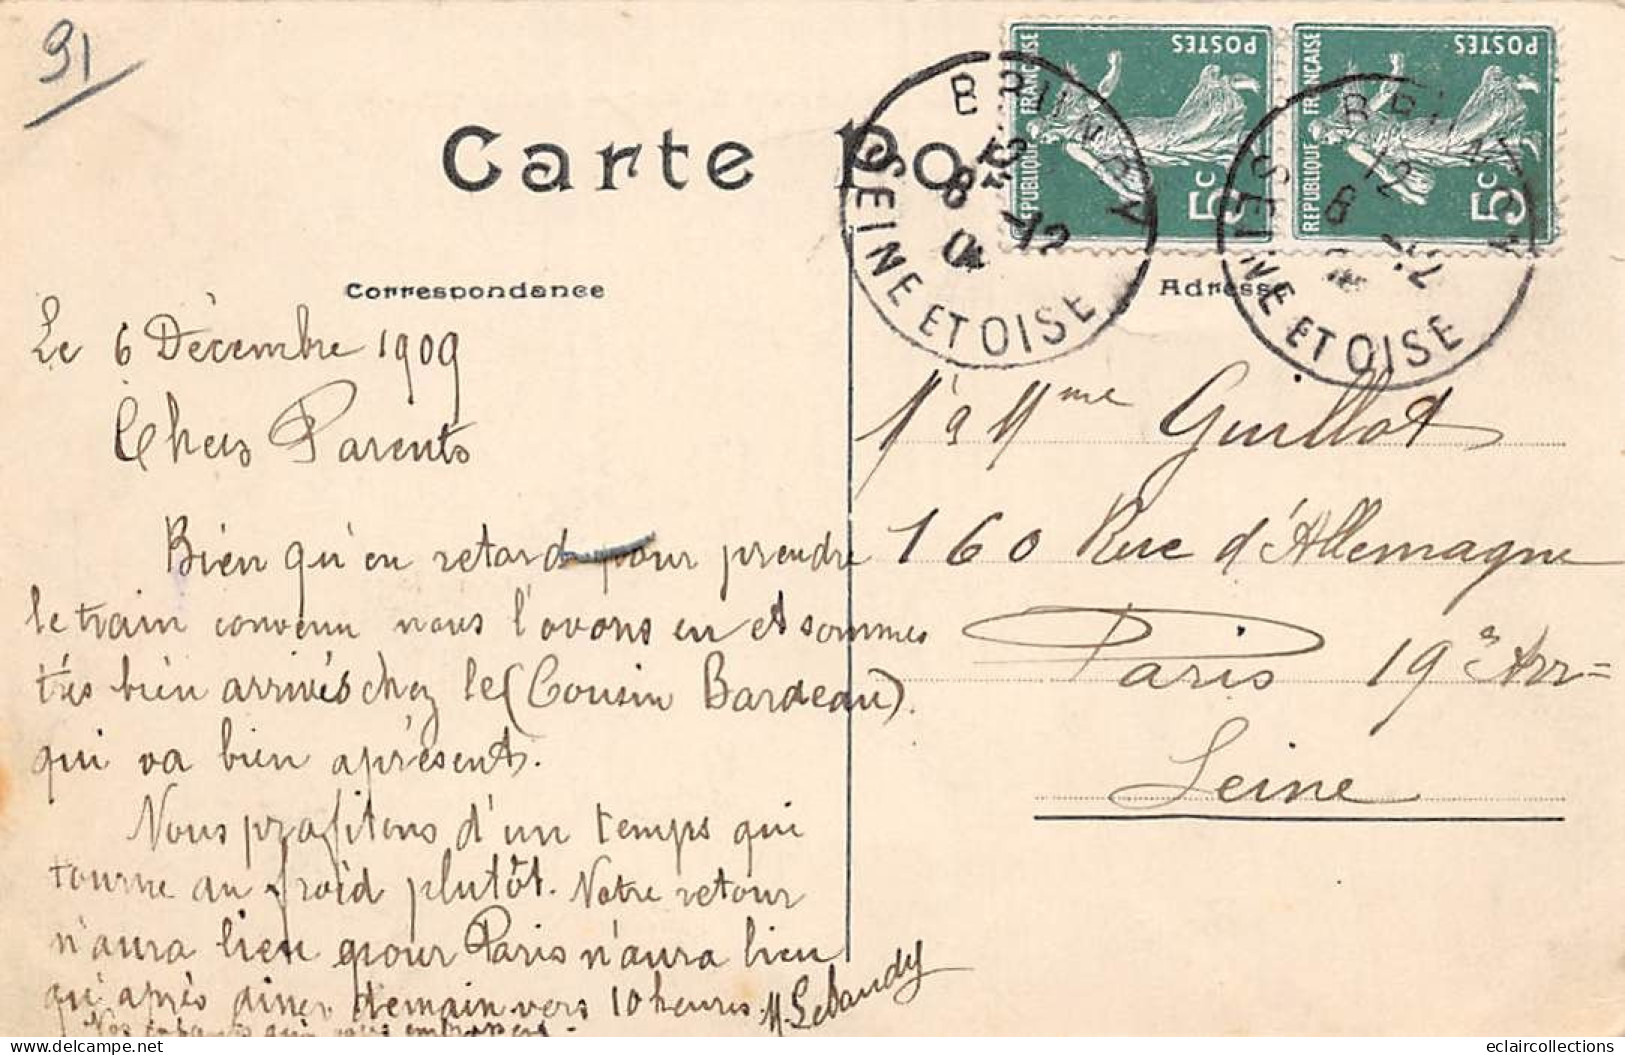 91
Carte Po
Correspondance
Adresse
POSTES
REPUBLIQUE FRANÇAISE
5c
POSTES
REPUBLIQUE FRANÇAISE
5c
BRUNOY
SEINE ET OISE
BRUNOY
SEINE ET OISE
Le 6 Décembre 1909
Chers Parents
Bien qu'en retard pour prendre
le train convenu nous l'avons eu et sommes
très bien arrivés chez le (Cousin Bardeau).
qui va bien àprésent.
Nous profitons d'un temps qui
tourne au froid plutôt. Notre retour
n'aura lieu pour Paris n'aura lieu
qu'après diner demain vers 10 heures.
Nos enfants qui vous embrassent.
M. Lebaudy
M à Mme Guillot
160 Rue d'Allemagne
Paris 19e Arr=
Seine
eclaircollections
delcampe.net